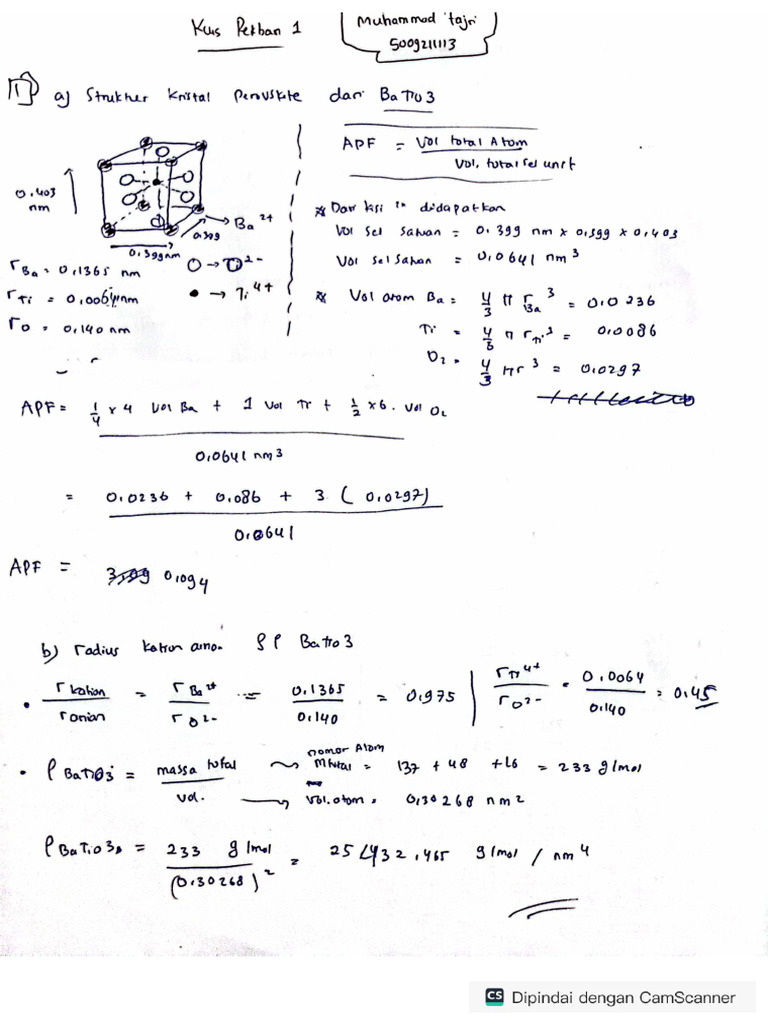 Kuis Perban 1
Muhammad fajri
5009211113
1 a) Struktur Kristal Perovskite dari BaTiO3
APF = Vol total Atom
Vol. total sel unit
0.403
nm
0.399
0.399nm
Ba2+
O2-
Ti4+
rBa = 0,1365 nm
rTi = 0,0064nm
rO = 0,140 nm
* Dari kisi 2n didapatkan
Vol sel satuan = 0.399 nm x 0,399 x 0,403
Vol sel satuan = 0,0641 nm3
* Vol atom Ba = 4/3 π rBa3 = 0,0236
Ti = 4/3 π rTi3 = 0,0086
O2 = 4/3 πr3 = 0,0297
APF = 1/4 x 4 Vol Ba + 1 Vol Ti + 1/2 x 6. Vol O2
0,0641 nm3
= 0,0236 + 0,086 + 3 (0,0297)
0,0641
APF = 0,094
b) radius kation anion BaTiO3
• r kation / r anion = r Ba2+ / r O2- = 0,1365 / 0,140 = 0,975
rTi4+ / rO2- = 0,0064 / 0,140 = 0,45
• ρ BaTiO3 = massa total / vol.
nomor Atom
Mtotal = 137 + 48 + 16 = 233 g/mol
Vol.atom = 0,30268 nm2
ρ BaTiO3 = 233 g/mol / (0,30268)2 = 25432,465 g/mol / nm4
CS Dipindai dengan CamScanner